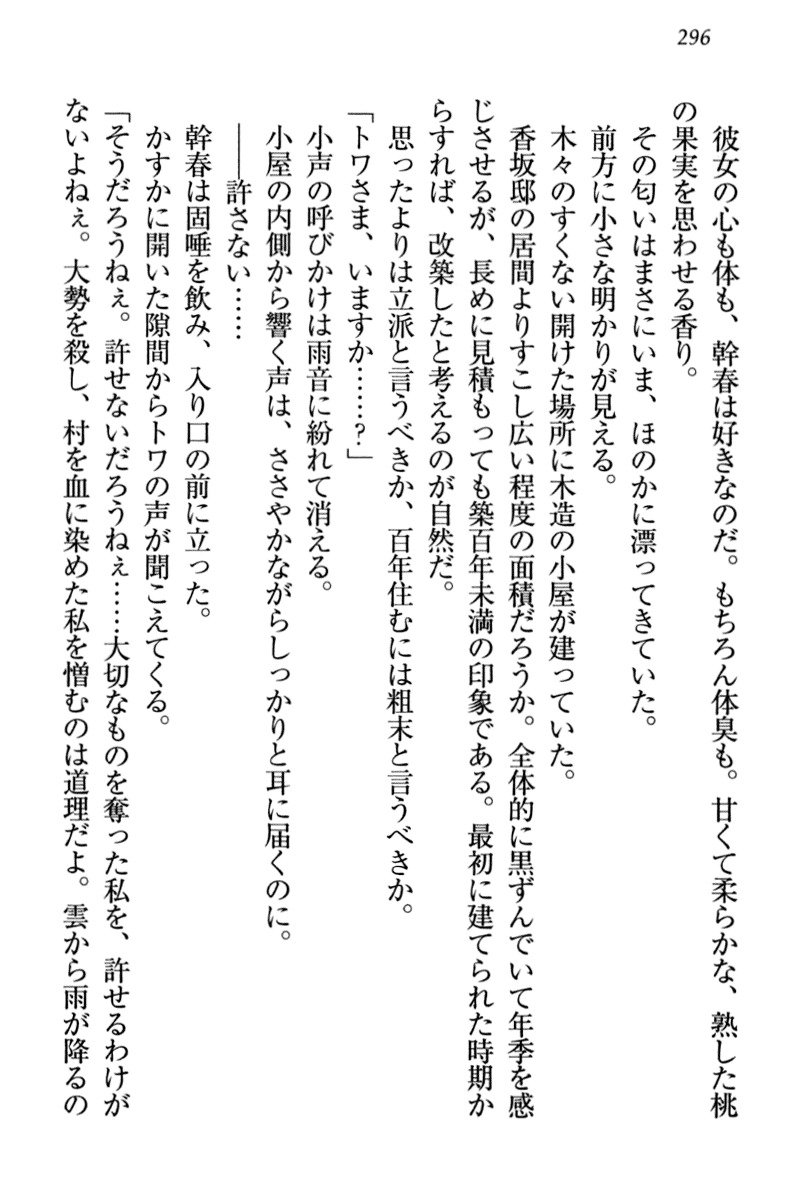 296
　彼女の心も体も、幹春は好きなのだ。もちろん体臭も。甘くて柔らかな、熟した桃
の果実を思わせる香り。
　その匂いはまさにいま、ほのかに漂ってきていた。
　前方に小さな明かりが見える。
　木々のすくない開けた場所に木造の小屋が建っていた。
　香坂邸の居間よりすこし広い程度の面積だろうか。全体的に黒ずんでいて年季を感
じさせるが、長めに見積もっても築百年未満の印象である。最初に建てられた時期か
らすれば、改築したと考えるのが自然だ。
　思ったよりは立派と言うべきか、百年住むには粗末と言うべきか。
「トワさま、いますか……？」
　小声の呼びかけは雨音に紛れて消える。
　小屋の内側から響く声は、ささやかながらしっかりと耳に届くのに。
　――許さない……
　幹春は固唾を飲み、入り口の前に立った。
　かすかに開いた隙間からトワの声が聞こえてくる。
「そうだろうねぇ。許せないだろうねぇ……大切なものを奪った私を、許せるわけが
ないよねぇ。大勢を殺し、村を血に染めた私を憎むのは道理だよ。雲から雨が降るの